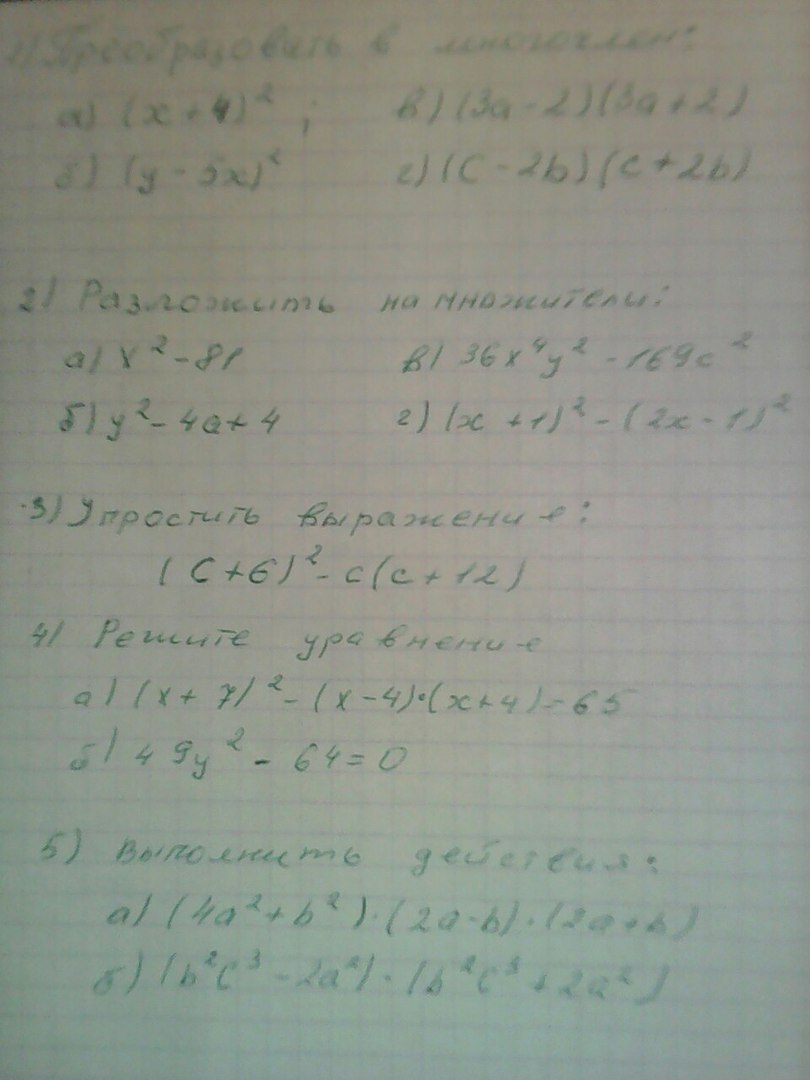 1) Преобразовать в многочлен:
а) (x + 4)² ; в) (3a - 2)(3a + 2)
б) (y - 5x)² г) (c - 2b)(c + 2b)
2) Разложить на множители:
а) x² - 81 в) 36x⁴y² - 169c²
б) y² - 4a + 4 г) (x + 1)² - (2x - 1)²
3) Упростить выражение:
(c + 6)² - c(c + 12)
4) Решите уравнение
а) (x + 7)² - (x - 4)·(x + 4) = 65
б) 49y² - 64 = 0
5) Выполнить действия:
а) (4a² + b²)·(2a - b)·(2a + b)
б) (b²c³ - 2a²)·(b²c³ + 2a²)